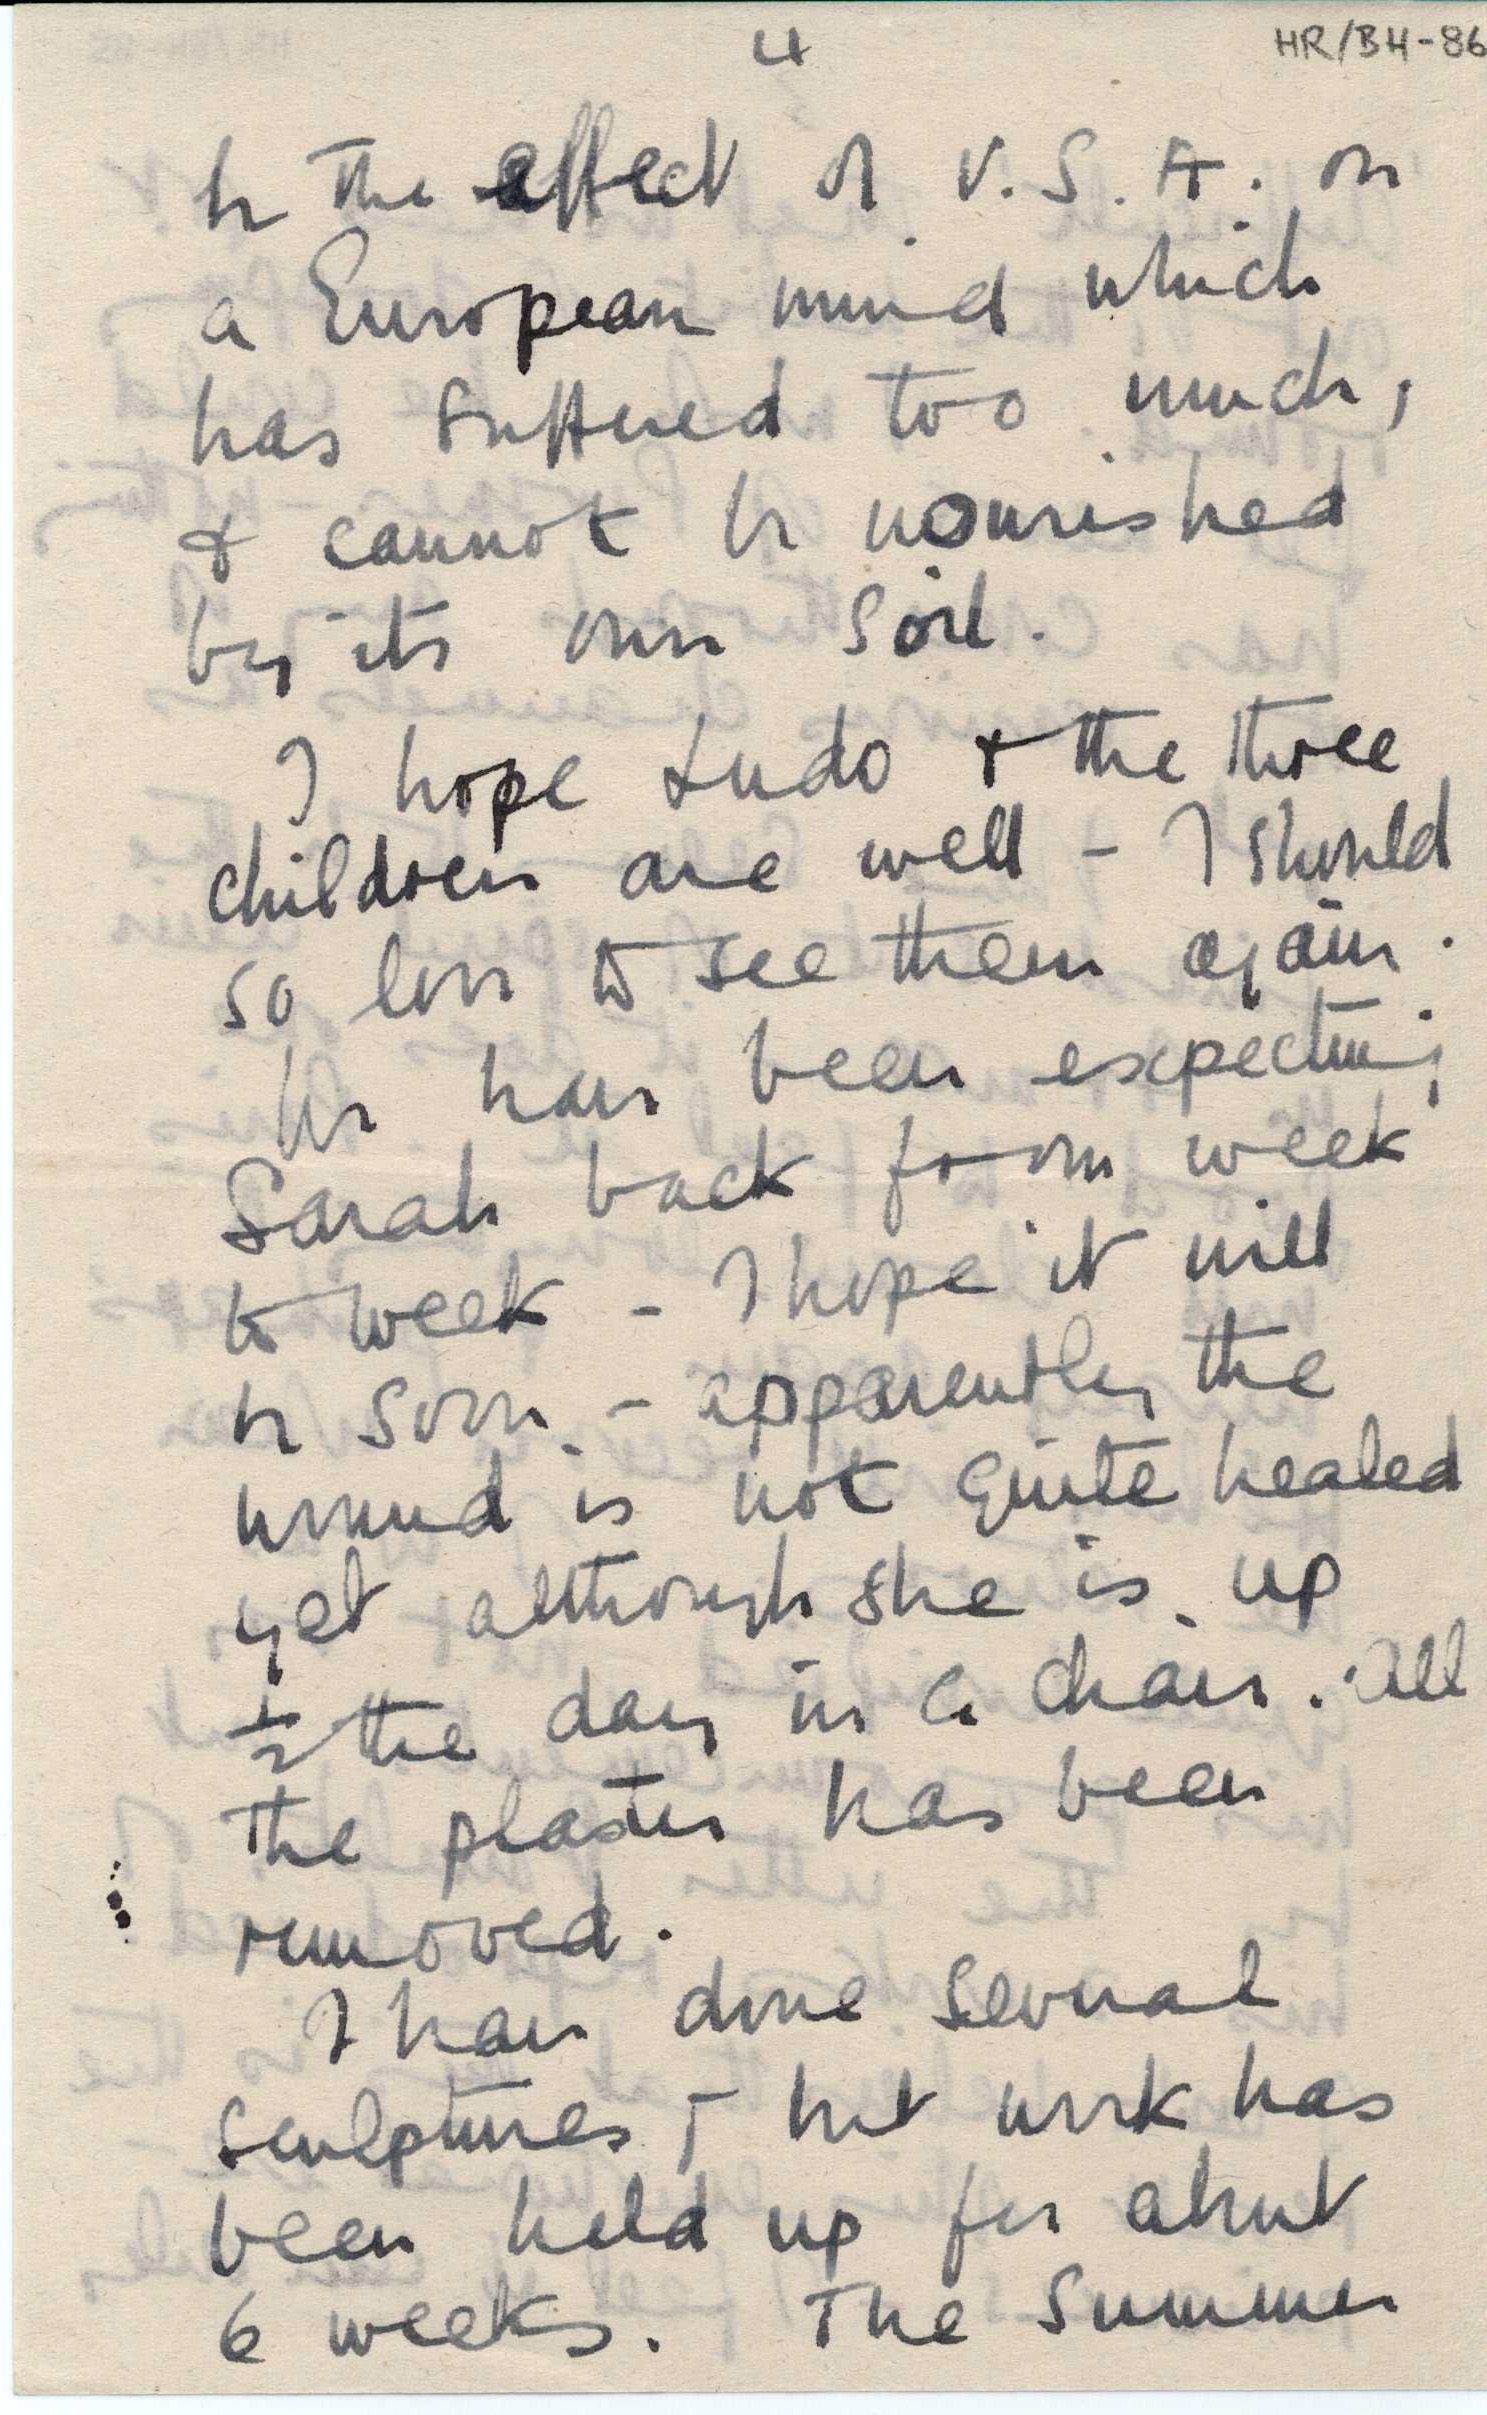 4
HR/BH-86
be the effect of U.S.A. on
a European mind which
has suffered too much,
& cannot be nourished
by its own soil.
I hope Ludo & the three
children are well – I should
so love to see them again.
We have been expecting
Sarah back from week
to week – I hope it will
be soon – apparently the
wound is not quite healed
yet although she is up
½ the day in a chair. All
the plaster has been
removed.
I have done several
sculptures, – but work has
been held up for about
6 weeks. The Summer